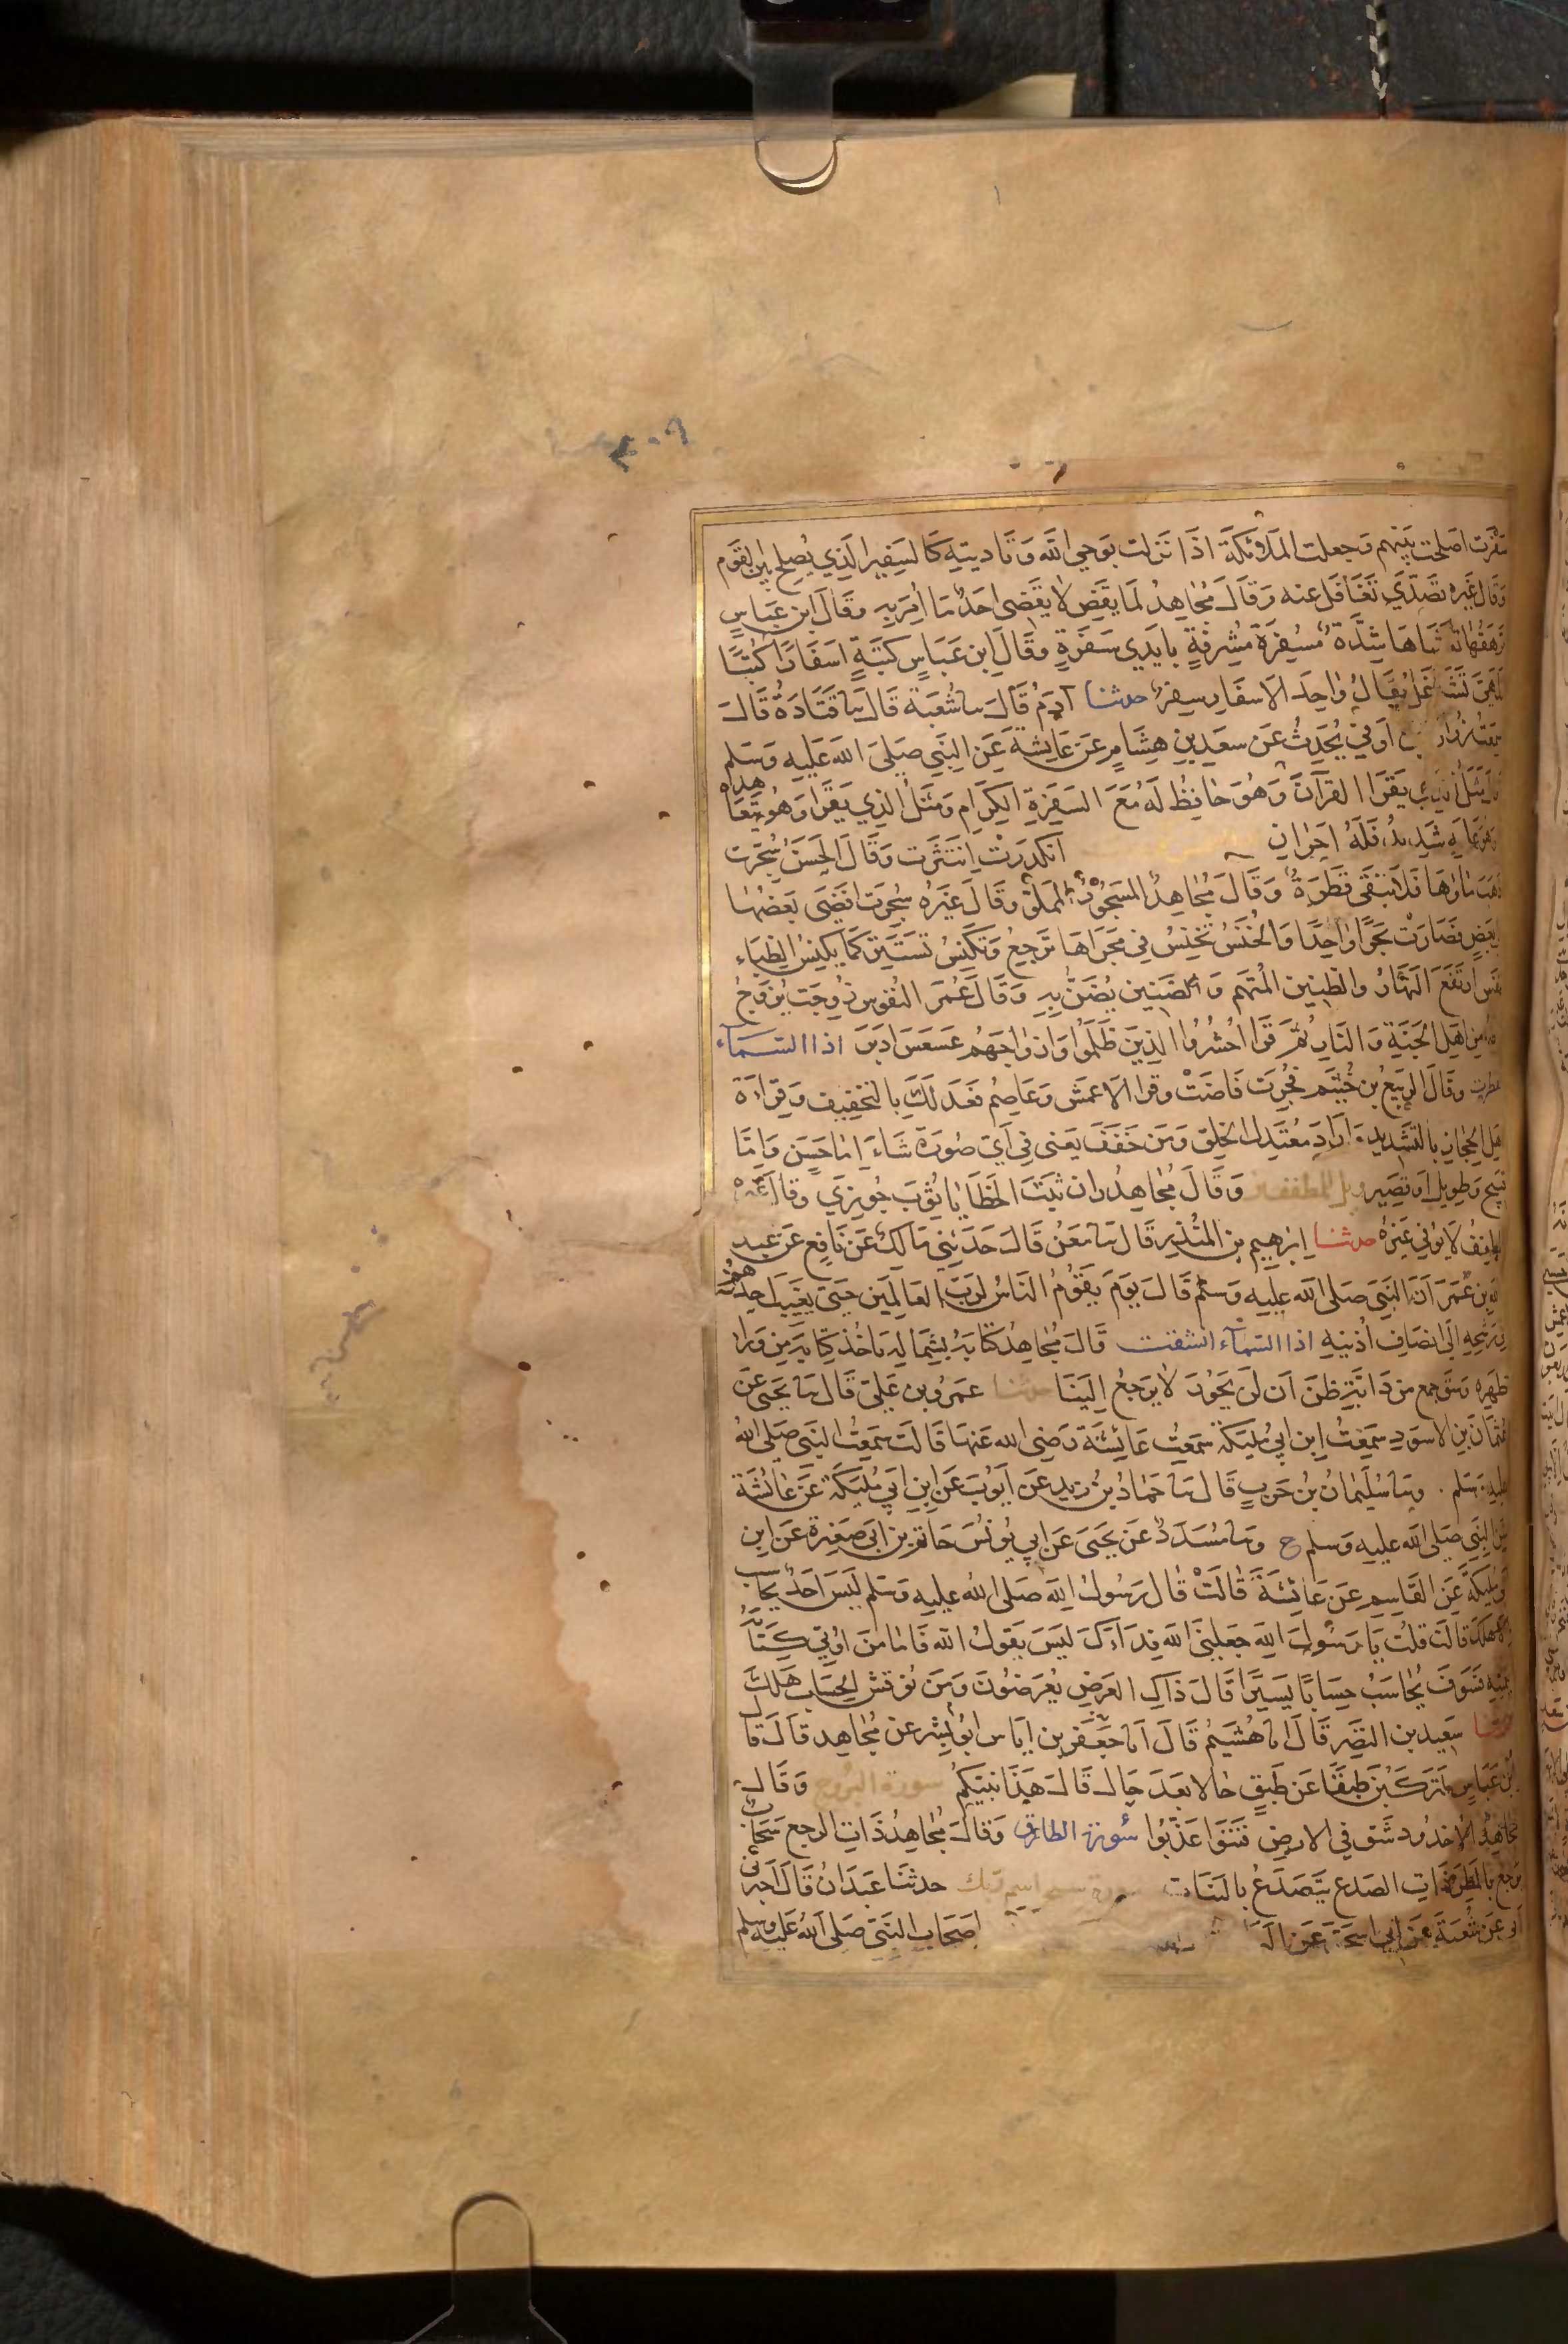 سفرت اصلحت بينهم وجعلت الملائكة اذا نزلت بوحي الله وتاديته كالسفير الذي يصلح بين القوم
وقال غيره تصدي تغافل عنه وقال مجاهد لما يقض لا يقضي احد ما امر به وقال ابن عباس
ترهقها تغشاها شدة مسفرة مشرقة بايدي سفرة وقال ابن عباس كتبة اسفارا كتبا
تلهي تشاغل يقال واحد الاسفار سفر حدثنا آدم قال سا شعبة قال سا قتادة قال
سمعت زرارة بن اوفي يحدث عن سعد بن هشام عن عايشة عن النبي صلى الله عليه وسلم
قال مثل الذي يقرا القرآن وهو حافظ له مع السفرة الكرام ومثل الذي يقرا وهو يتعاهده
وهو عليه شديد فله اجران انكدرت انتثرت وقال الحسن سجرت
ذهب ماؤها فلا تبقى قطرة وقال مجاهد المسجور المملو وقال غيره سجرت افضى بعضها
الى بعض فصارت بحرا واحدا والخنس تخنس في مجراها ترجع وتكنس تستتر كما يكنس الظباء
تنفس ارتفع النهار والظنين المتهم والضنين يضن به وقال عمر النفوس زوجت يزوج
نظيره من اهل الجنة والنار ثم قرا احشروا الذين ظلموا وازواجهم عسعس ادبر اذا السمآء
انفطرت وقال الربيع بن خثيم فجرت فاضت وقرا الاعمش وعاصم فعدلك بالتخفيف وقراءة
اهل الحجاز بالتشديد واراد معتدل الخلق ومن خفف يعني في اي صورة شاء اما حسن واما
قبيح وطويل او قصير ويل للمطففين وقال مجاهد ران ثبت الخطايا ثوب جوزي وقال غيره
المطفف لا يوفي غيره حدثنا ابرهيم بن المنذر قال سا معن قال حدثني مالك عن نافع عن عبد
الله بن عمر ان النبي صلى الله عليه وسلم قال يوم يقوم الناس لرب العالمين حتى يغيب احدهم
في رشحه الى انصاف اذنيه اذا السمآء انشقت قال مجاهد كتابه بشماله ياخذ كتابه من ورا
ظهره وسق جمع من دابة ظن ان لن يحور لا يرجع الينا حدثنا عمرو بن علي قال سا يحيى عن
عثمان بن الاسود سمعت ابن ابي مليكة سمعت عائشة رضي الله عنها قالت سمعت النبي صلى الله
عليه وسلم وسا سليمان بن حرب قال سا حماد بن زيد عن ايوب عن ابن ابي مليكة عن عائشة
عن النبي صلى الله عليه وسلم ح وسا مسدد عن يحيى عن ابي يونس حاتم بن ابي صغيرة عن ابن
ابي مليكة عن القاسم عن عائشة قالت قال رسول الله صلى الله عليه وسلم ليس احد يحاسب
الا هلك قالت قلت يا رسول الله جعلني الله فداءك ليس يقول الله فاما من اوتي كتابه
بيمينه فسوف يحاسب حسابا يسيرا قال ذاك العرض يعرضون ومن نوقش الحساب هلك
حدثنا سعيد بن النضر قال انا هشيم قال انا جعفر بن اياس ابو بشر عن مجاهد قال قال
ابن عباس لتركبن طبقا عن طبق حالا بعد حال قال هذا نبيكم سورة البروج وقال
مجاهد الاخدود شق في الارض فتنوا عذبوا سورة الطارق وقال مجاهد ذات الرجع سحاب
يرجع بالمطر ذات الصدع يتصدع بالنبات سورة سبح اسم ربك حدثنا عبدان قال اخبرني
ابي عن شعبة عن ابي اسحق عن اصحاب النبي صلى الله عليه وسلم